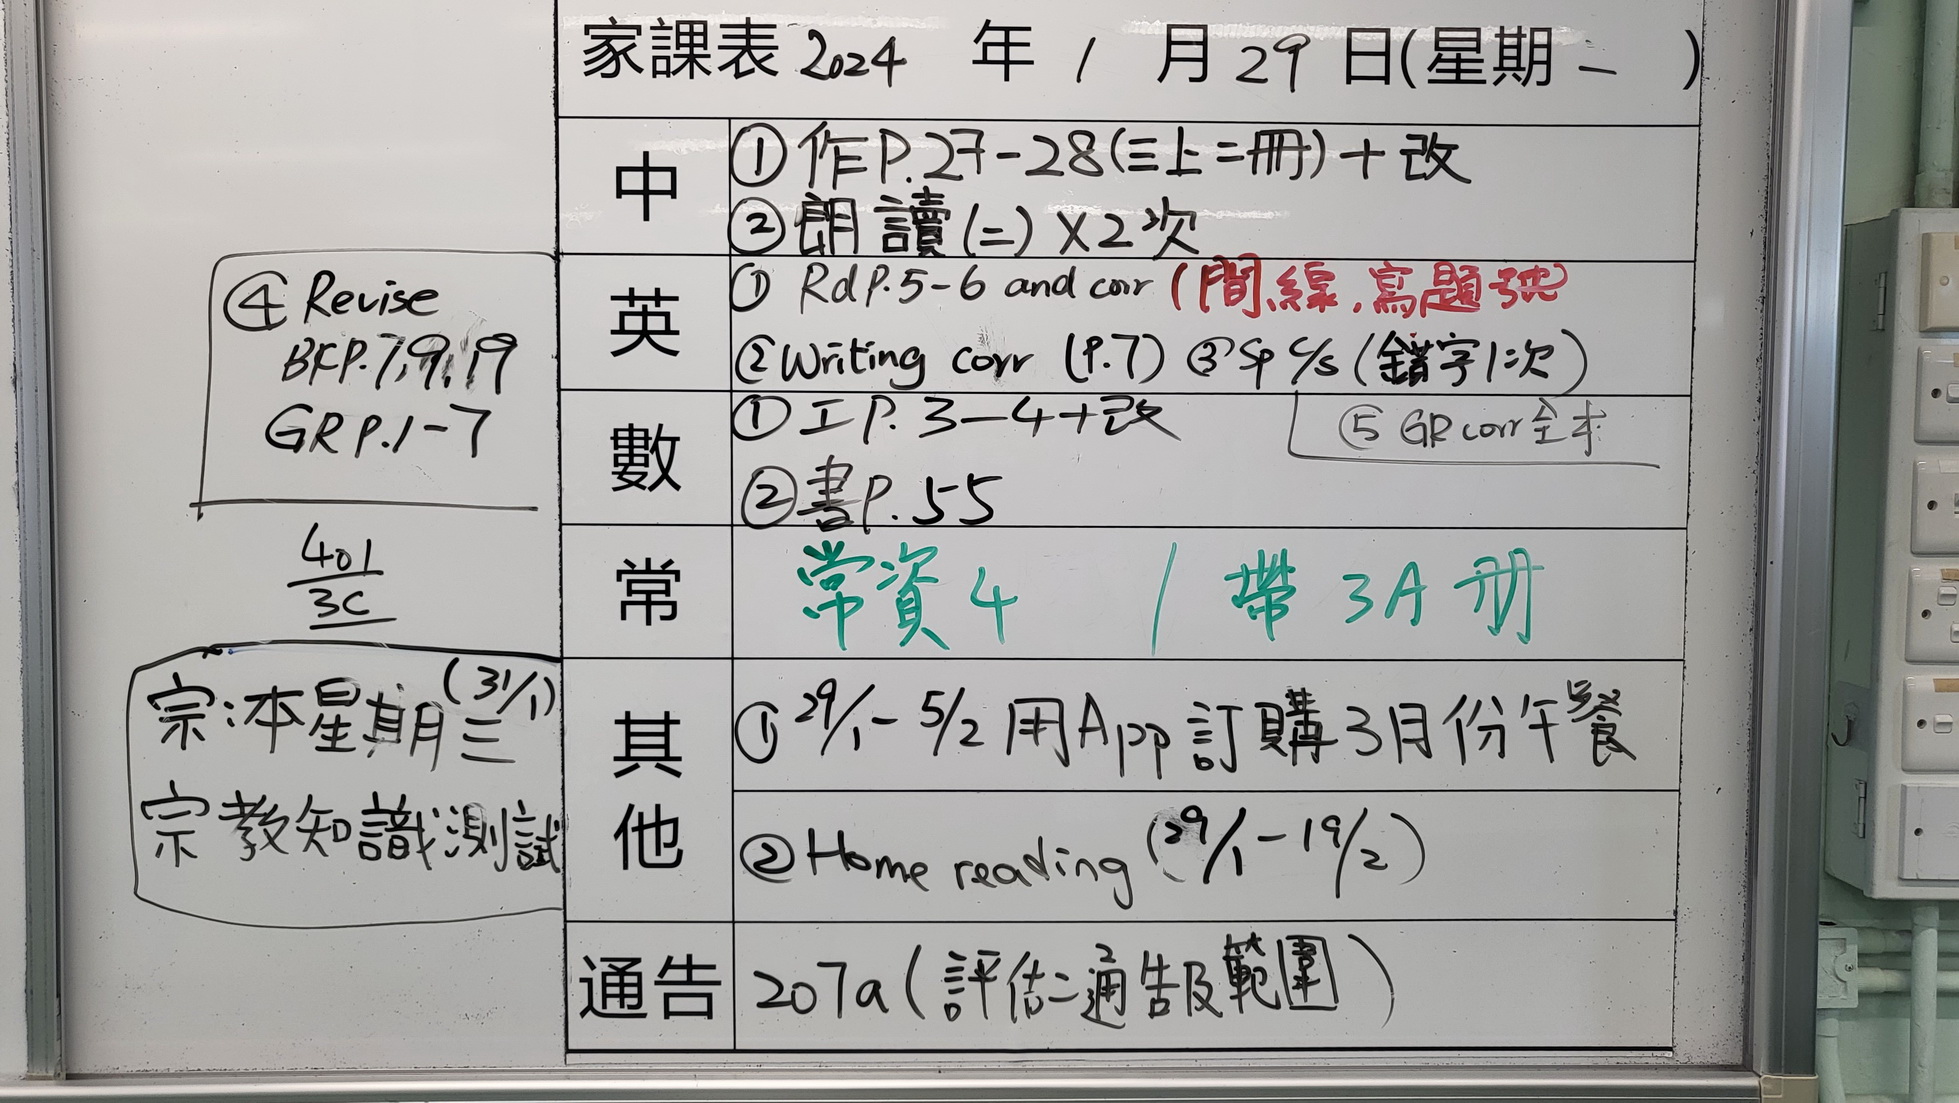 家課表 2024 年 1 月 29 日(星期 一 )
中
① 作P.27-28(三上二冊)+改
② 朗讀(二)X2次
英
① Rd P.5-6 and corr (間線,寫題號)
② Writing corr (P.7) ③ Sp c/s (錯字1次)
④ Revise
BK P.7,9,19
GR P.1-7
⑤ GR corr 全本
數
① 工P. 3-4+改
② 書P.55
401
3C
常
常資4 / 帶 3A 冊
其他
① 29/1 - 5/2 用App訂購3月份午餐
② Home reading (29/1 - 19/2)
宗:本星期三(31/1)
宗教知識測試
通告
207a (評估二通告及範圍)